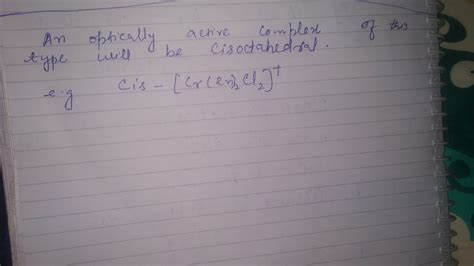 An optically active complex of this
type will be Cisoctahedral.
e.g Cis - [Cr(en)2Cl2]+